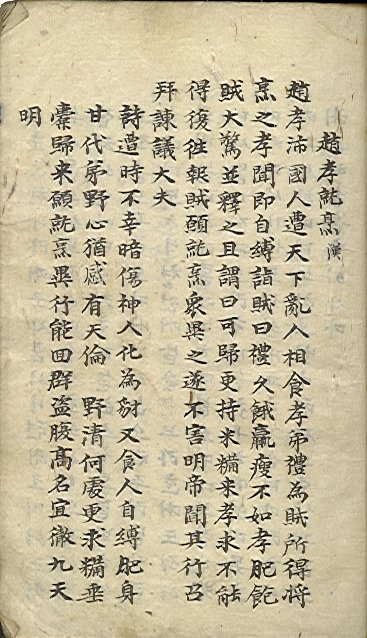 趙孝就烹 漢
趙孝沛國人遭天下亂人相食孝弟禮為賊所得將
烹之孝聞即自縛詣賊曰禮久餓羸瘦不如孝肥飽
賊大驚並釋之且謂曰可歸更持米糒來孝求不能
得復往報賊願就烹衆異之遂不害明帝聞其行召
拜諫議大夫
詩遭時不幸暗傷神人化為豺又食人自縛肥身
甘代弟野心猶感有天倫 野清何處更求糒垂
橐歸来願就烹異行能回群盜腹高名宜徹九天
明